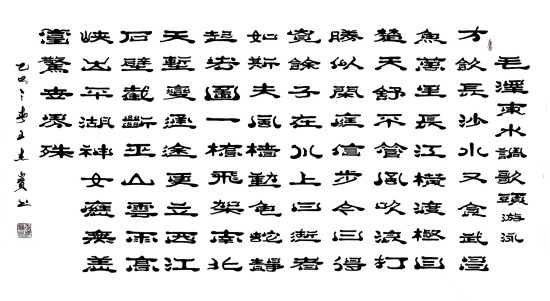 毛澤東水調歌頭游泳
才飲長沙水又食武昌
魚萬里長江橫渡極目
楚天舒不管風吹浪打
勝似閑庭信步今日得
寬餘子在川上曰逝者
如斯夫風檣動龜蛇靜
起宏圖一橋飛架南北
天塹變通途更立西江
石壁截斷巫山雲雨高
峽出平湖神女應無恙
當驚世界殊
之春王